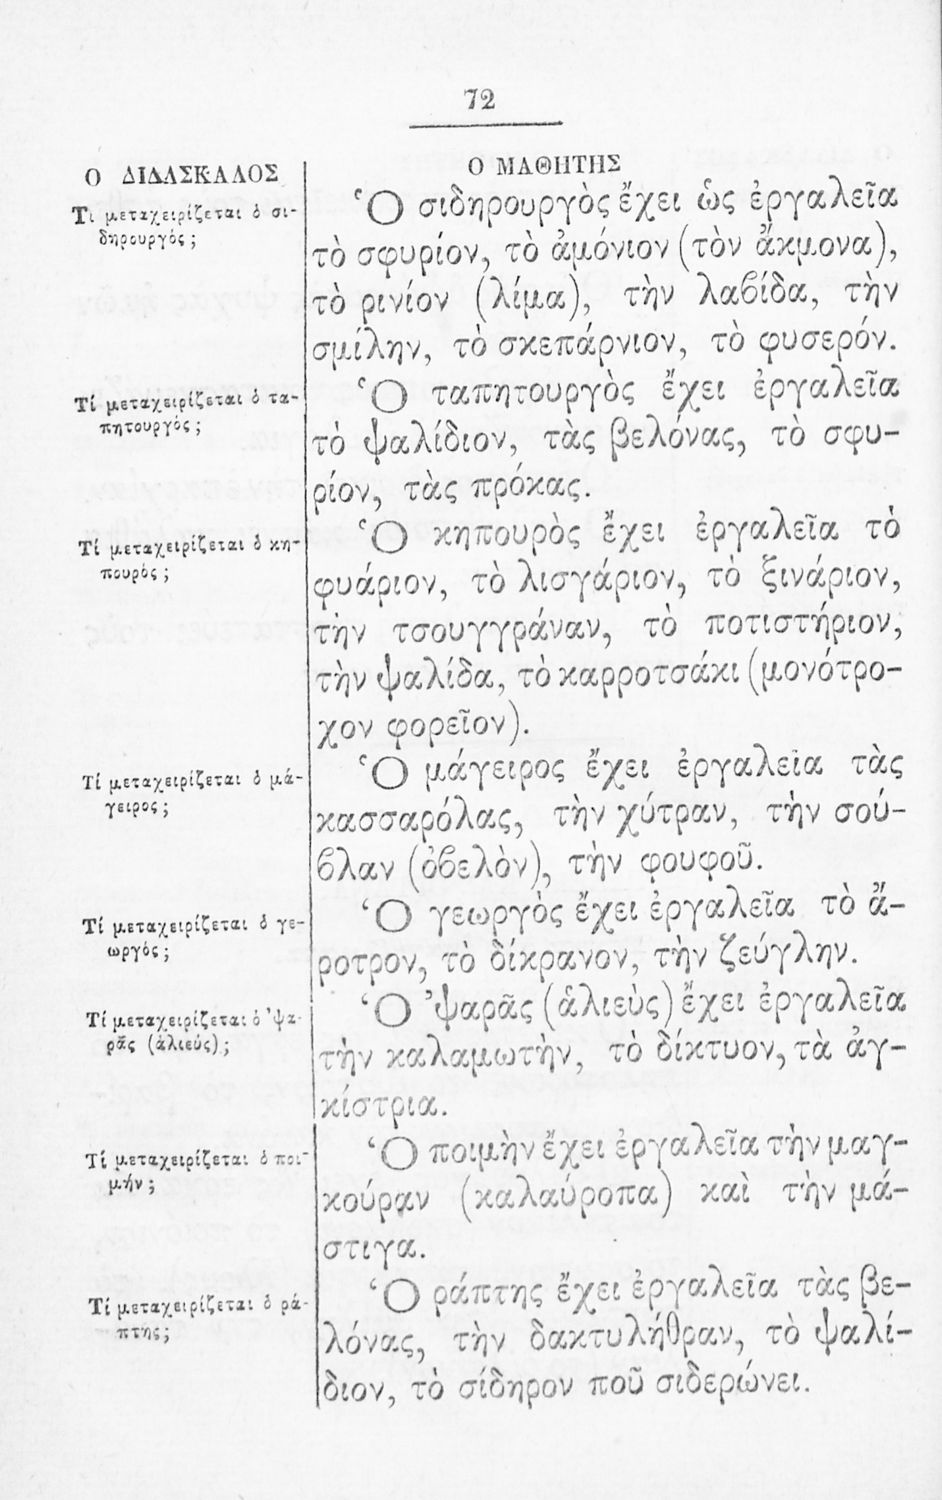 72
Ο ΔΙΔΑΣΚΑΛΟΣ
Τι μεταχειρίζεται ὁ σι-
δηρουργός;
Τί μεταχειρίζεται ὁ τα-
πητουργός;
Τί μεταχειρίζεται ὁ κη-
πουρός;
Τί μεταχειρίζεται ὁ μά-
γειρος;
Τί μεταχειρίζεται ὁ γε-
ωργός;
Τί μεταχειρίζεται ὁ ’ψα-
ρᾶς (ἁλιεύς);
Τί μεταχειρίζεται ὁ ποι-
μήν;
Τί μεταχειρίζεται ὁ ρά-
πτης;
Ο ΜΑΘΗΤΗΣ
Ὁ σιδηρουργὸς ἔχει ὡς ἐργαλεῖα
τὸ σφυρίον, τὸ ἀμόνιον (τὸν ἄκμονα),
τὸ ρινίον (λίμα), τὴν λαβίδα, τὴν
σμίλην, τὸ σκεπάρνιον, τὸ φυσερόν.
Ὁ ταπητουργὸς ἔχει ἐργαλεῖα
τὸ ψαλίδιον, τὰς βελόνας, τὸ σφυ-
ρίον, τὰς πρόκας.
Ὁ κηπουρὸς ἔχει ἐργαλεῖα τὸ
φυάριον, τὸ λισγάριον, τὸ ξινάριον,
τὴν τσουγγράναν, τὸ ποτιστήριον,
τὴν ψαλίδα, τὸ καρροτσάκι (μονότρο-
χον φορεῖον).
Ὁ μάγειρος ἔχει ἐργαλεῖα τὰς
κασσαρόλας, τὴν χύτραν, τὴν σού-
βλαν (ὀβελὸν), τὴν φουφοῦ.
Ὁ γεωργὸς ἔχει ἐργαλεῖα τὸ ἄ-
ροτρον, τὸ δίκρανον, τὴν ζεύγλην.
Ὁ ’ψαρᾶς (ἁλιεὺς) ἔχει ἐργαλεῖα
τὴν καλαμωτὴν, τὸ δίκτυον, τὰ ἀγ-
κίστρια.
Ὁ ποιμὴν ἔχει ἐργαλεῖα τὴν μαγ-
κούραν (καλαύροπα) καὶ τὴν μά-
στιγα.
Ὁ ράπτης ἔχει ἐργαλεῖα τὰς βε-
λόνας, τὴν δακτυλήθραν, τὸ ψαλί-
διον, τὸ σίδηρον ποῦ σιδερώνει.